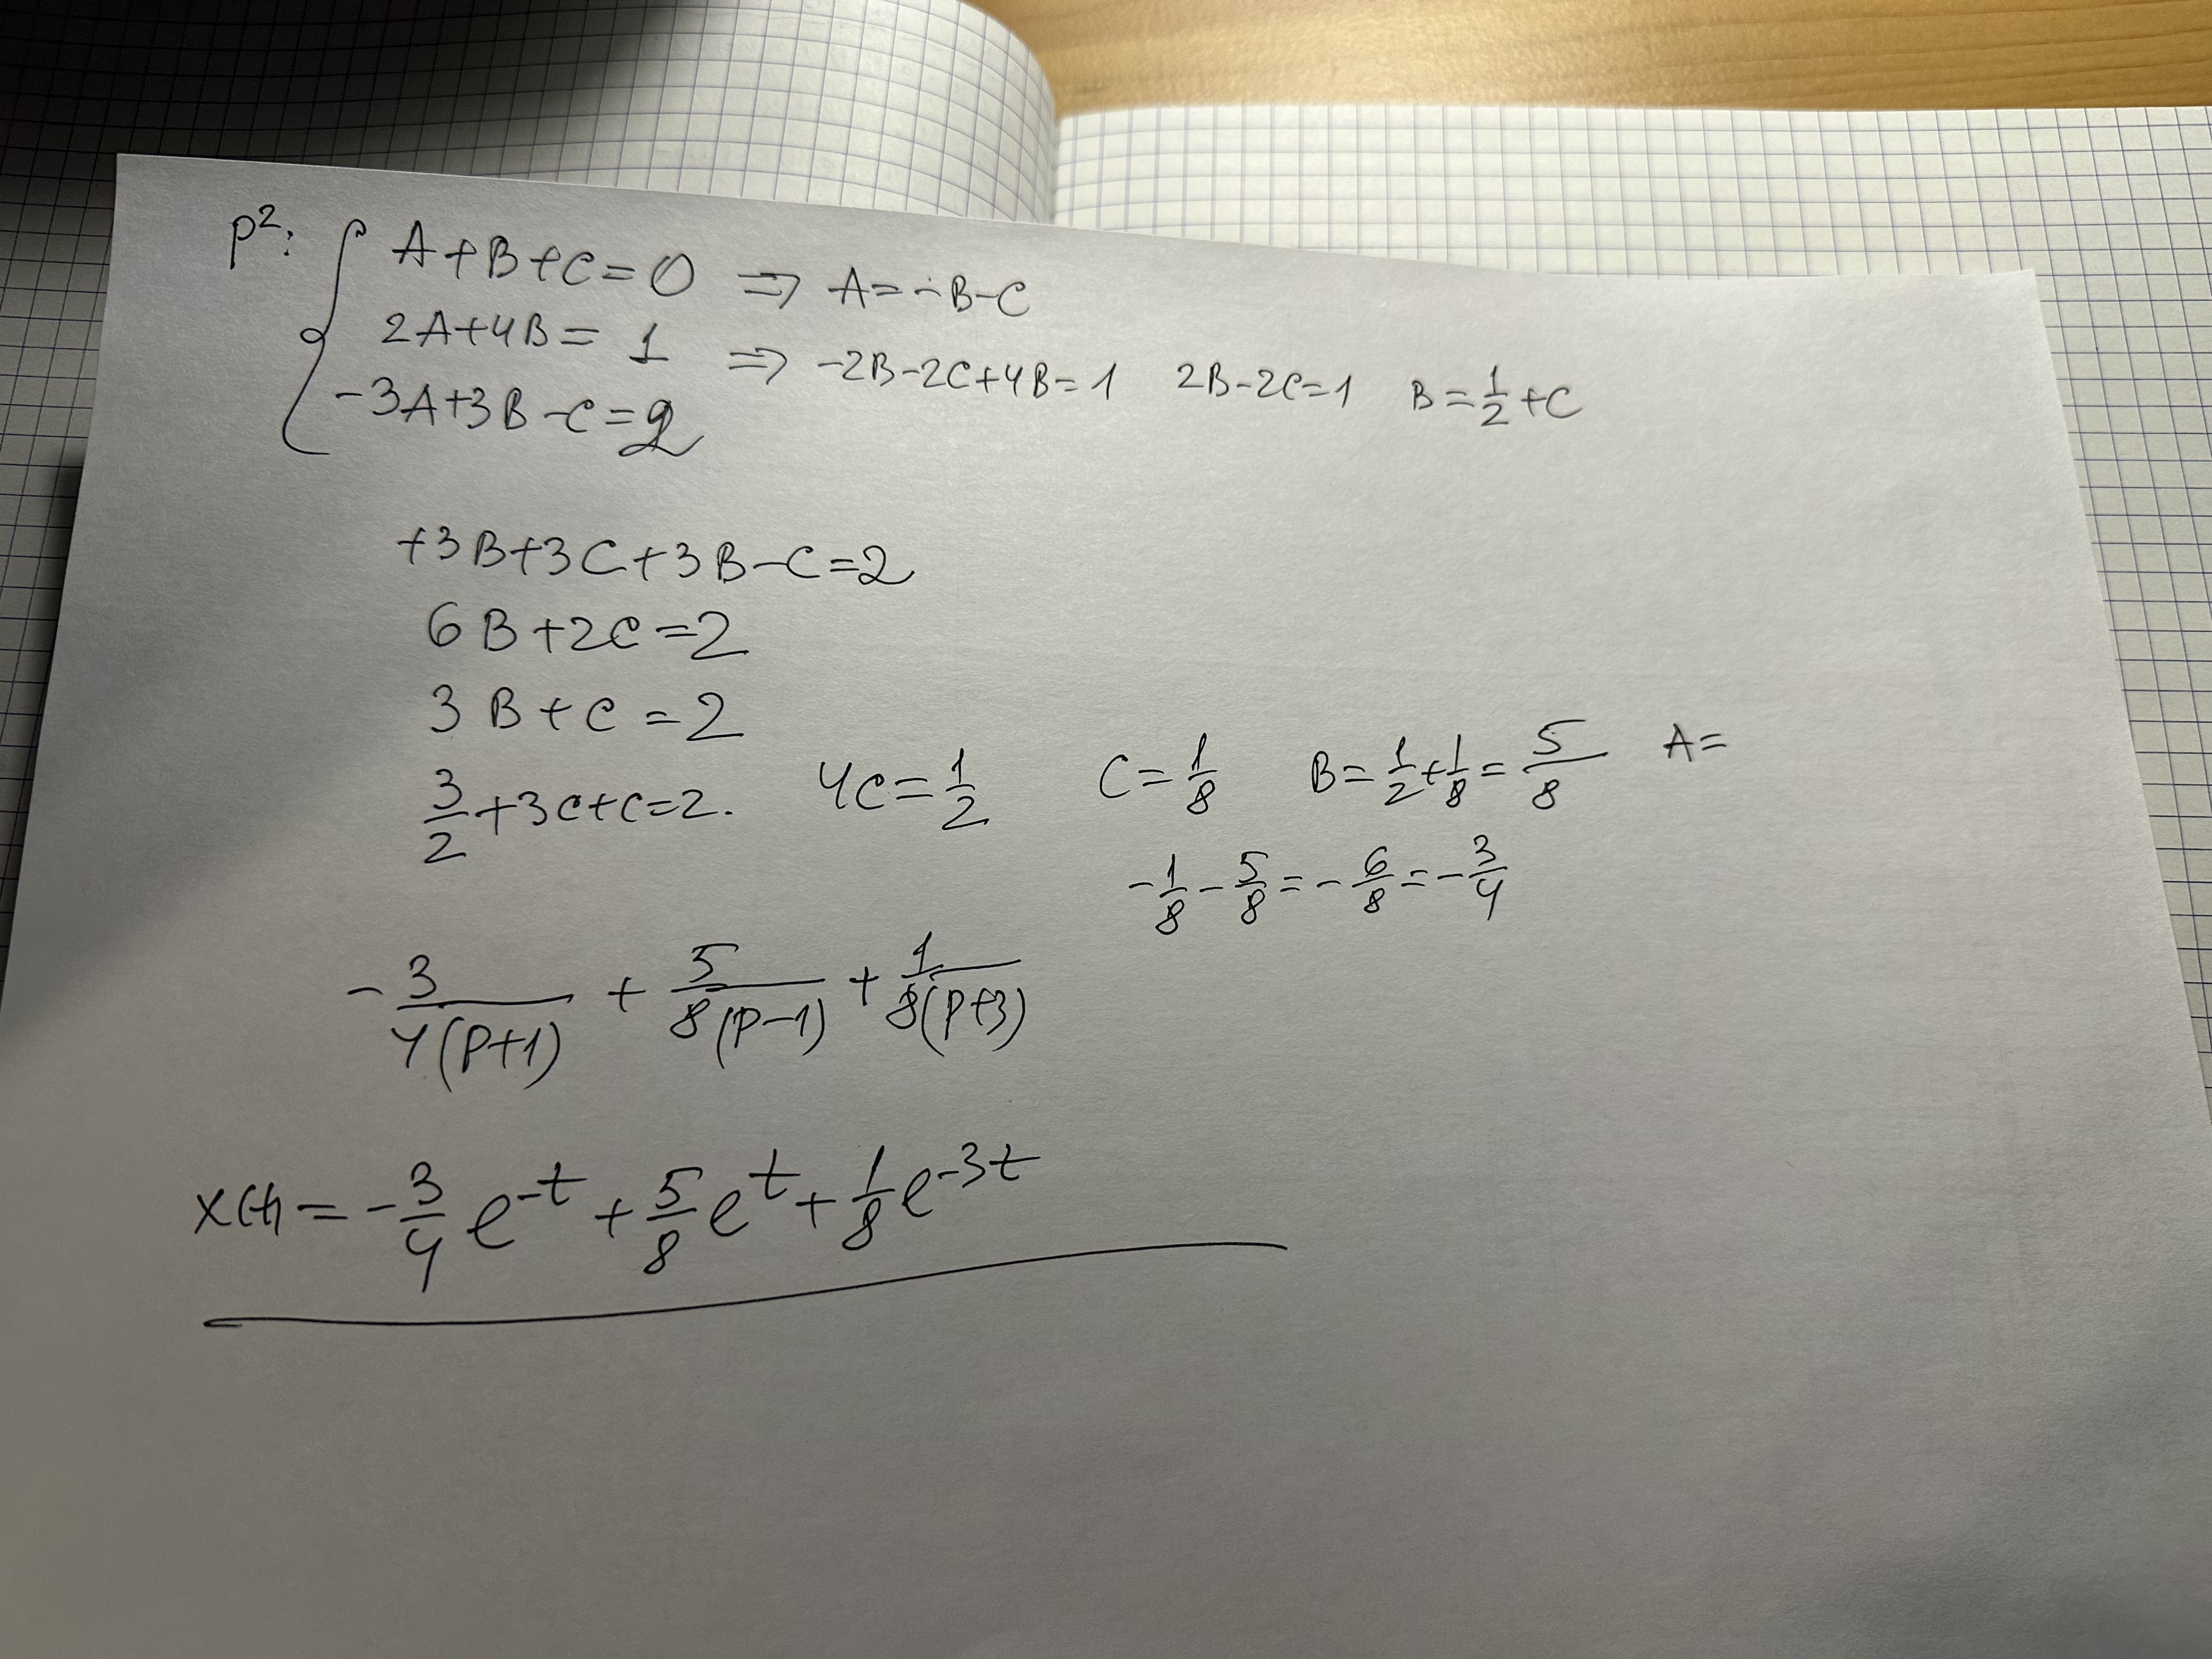 p²: { A+B+C=0 ⇒ A=-B-C
2A+4B=1 ⇒ -2B-2C+4B=1 2B-2C=1 B=1/2+C
-3A+3B-C=2
+3B+3C+3B-C=2
6B+2C=2
3B+C=2
3/2+3C+C=2. 4C=1/2 C=1/8 B=1/2+1/8=5/8 A=
-1/8-5/8=-6/8=-3/4
-3/4(p+1) + 5/8(p-1) + 1/8(p+3)
x(t)=-3/4 e^-t + 5/8 e^t + 1/8 e^-3t